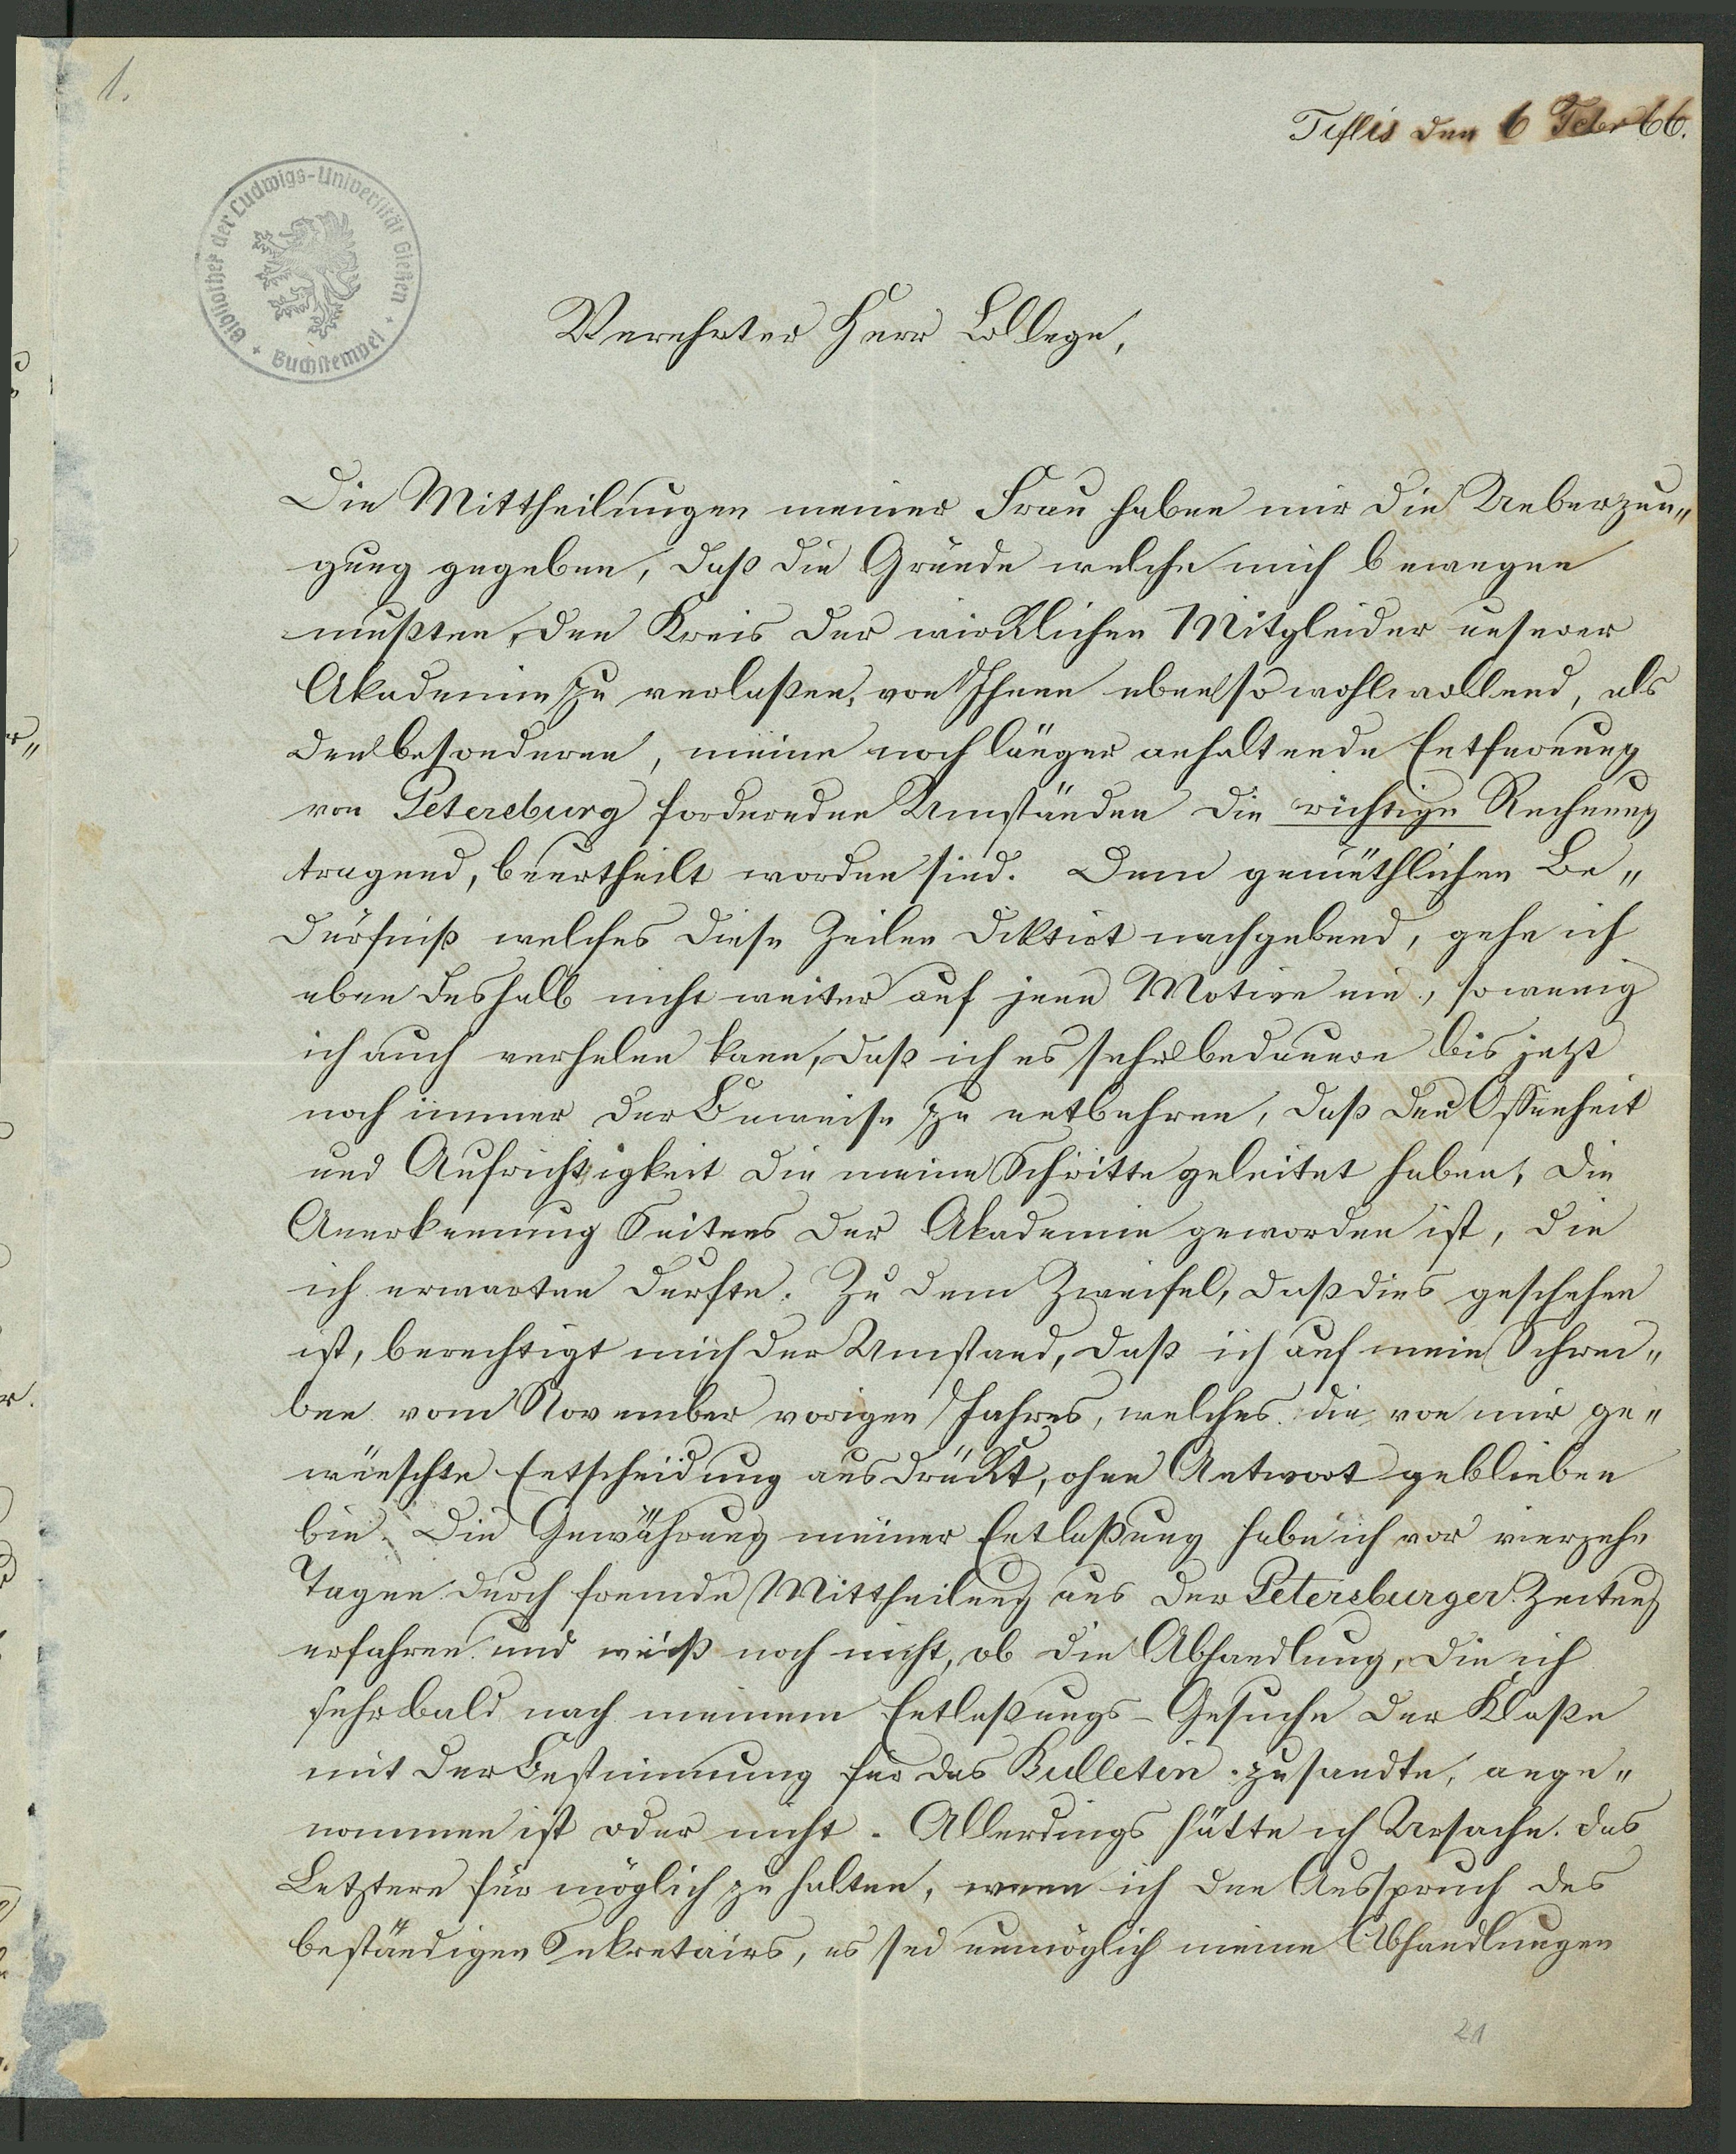 1.
Tiflis den 6 Febr 66.
Bibliothek der Ludwigs-Universität Gießen
Buchstempel
Verehrter Herr College,
Die Mittheilungen meiner Frau haben mir die Ueberzeu„
gung gegeben, daß die Gründe welche mich bewegen
mußten, den Kreis der wirklichen Mitglieder unserer
Akademie zu verlaßen, von Ihnen ebenso wohlwollend, als
den besonderen, meine noch länger anhaltende Entfernung
von Petersburg fordernden Umständen die richtige Rechnung
tragend, beurtheilt worden sind. Dem gemüthlichen Be„
dürfniß welches diese Zeilen diktirt nachgebend, gehe ich
eben deshalb nicht weiter auf jene Motive ein, so wenig
ich auch verhelen kann, daß ich es sehr bedauere bis jetzt
noch immer der Beweise zu entbehren, daß der Offenheit
und Aufrichtigkeit die meine Schritte geleitet haben, die
Anerkennung Seitens der Akademie geworden ist, die
ich erwarten durfte. Zu dem Zweifel, daß dies geschehen
ist, berechtigt mich der Umstand, daß ich auf mein Schrei„
ben vom November vorigen Jahres, welches die von mir ge„
wünschte Entscheidung ausdrückt, ohne Antwort geblieben
bin. Die Gewährung meiner Entlaßung habe ich vor vierzehn
Tagen durch fremde Mittheilung aus der Petersburger Zeitung
erfahren und weiß noch nicht, ob die Abhandlung, die ich
sehr bald nach meinem Entlaßungs-Gesuche der Klaße
mit der Bestimmung für das Bulletin zusandte, ange„
nommen ist oder nicht. Allerdings hätte ich Ursache das
Letztere für möglich zu halten, wenn ich den Ausspruch des
beständigen Sekretairs, es sei unmöglich meine Abhandlungen
21